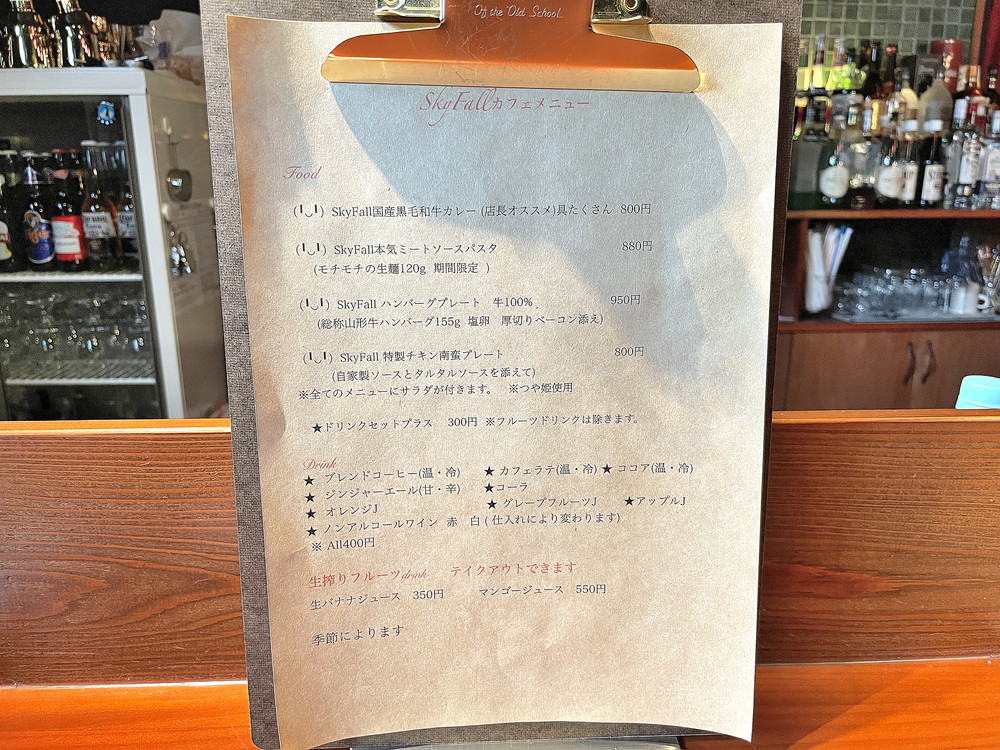 Of the Old School.
SkyFallカフェメニュー
Food
(╹◡╹) SkyFall国産黒毛和牛カレー (店長オススメ)具たくさん 800円
(╹◡╹) SkyFall本気ミートソースパスタ 880円
(モチモチの生麺120g 期間限定 )
(╹◡╹) SkyFall ハンバーグプレート 牛100% 950円
(総称山形牛ハンバーグ155g 塩卵 厚切りベーコン添え)
(╹◡╹) SkyFall 特製チキン南蛮プレート 800円
(自家製ソースとタルタルソースを添えて)
※全てのメニューにサラダが付きます。 ※つや姫使用
★ドリンクセットプラス 300円 ※フルーツドリンクは除きます。
Drink
★ ブレンドコーヒー(温・冷) ★ カフェラテ(温・冷) ★ ココア(温・冷)
★ ジンジャーエール(甘・辛) ★コーラ
★ オレンジJ ★ グレープフルーツJ ★アップルJ
★ ノンアルコールワイン 赤 白 ( 仕入れにより変わります)
※ All400円
生搾りフルーツdrink テイクアウトできます
生バナナジュース 350円 マンゴージュース 550円
季節によります